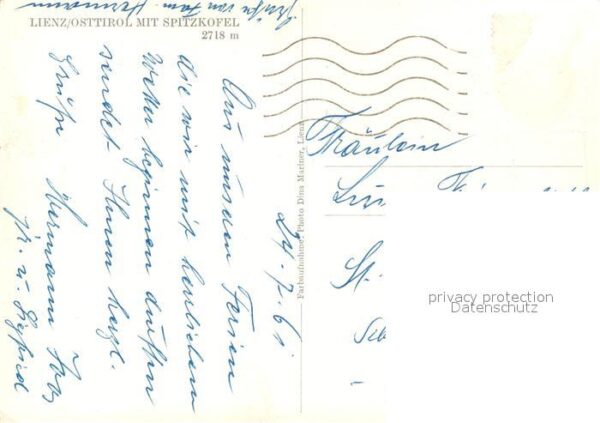 LIENZ/OSTTIROL MIT SPITZKOFEL
2718 m
Grüße von Fam. Hermann
24.7.61
Aus unseren Ferien
die wir mit herrlichem
Wetter beginnen durften
sendet Ihnen herzl.
Grüße Hermann
jr. u. Siegfried
Farbaufnahme: Photo Dina Mariner, Lienz
Fräulein
St.
privacy protection
Datenschutz